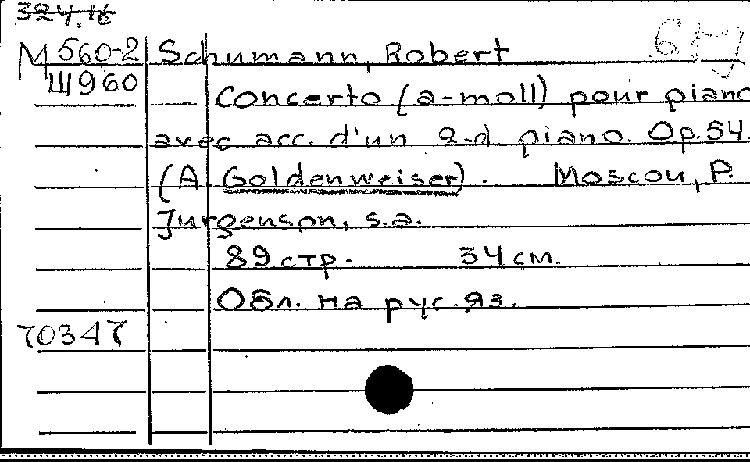 324.16
М 560-2 Schumann, Robert
Ш960 Concerto (a-moll) pour piano
avec acc. d'un 2-d piano. Op. 54.
(A Goldenweiser). Moscou, P.
Jurgenson, s.a.
89 стр. 34 см.
Обл. на рус. яз.
70347